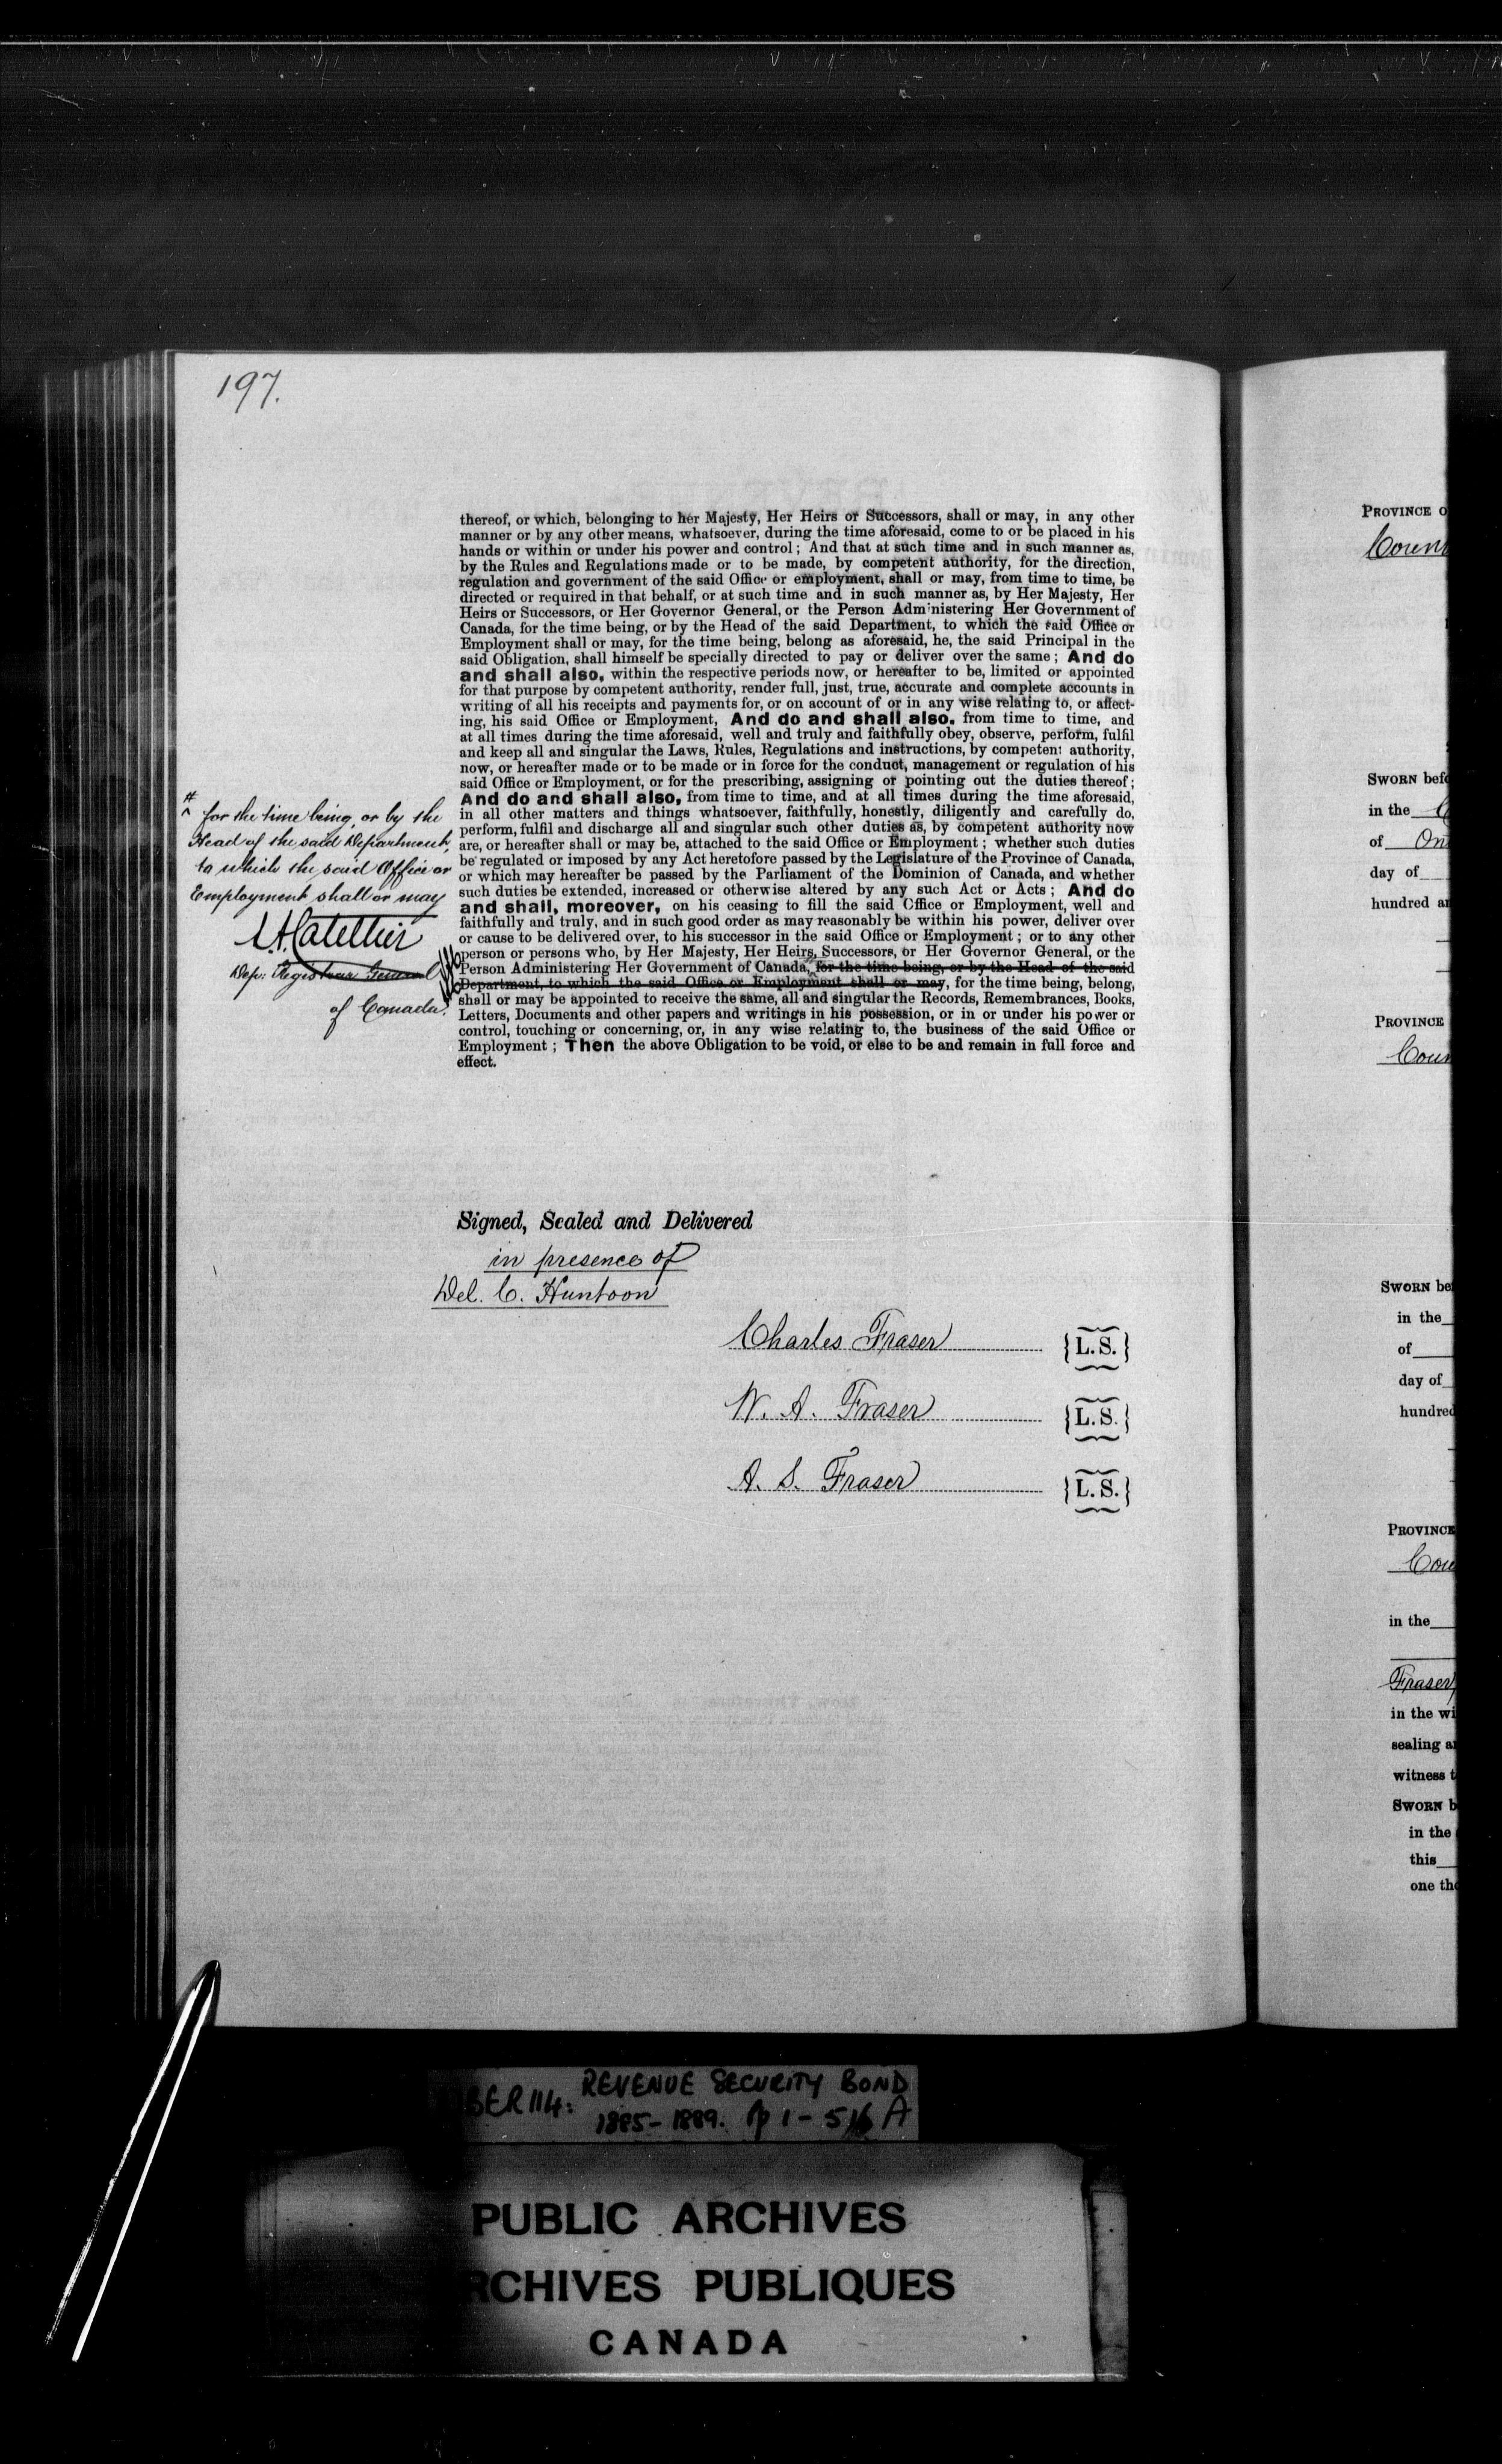 197.
thereof, or which, belonging to her Majesty, Her Heirs or Successors, shall or may, in any other
manner or by any other means, whatsoever, during the time aforesaid, come to or be placed in his
hands or within or under his power and control; And that at such time and in such manner as,
by the Rules and Regulations made or to be made, by competent authority, for the direction,
regulation and government of the said Office or employment, shall or may, from time to time, be
directed or required in that behalf, or at such time and in such manner as, by Her Majesty, Her
Heirs or Successors, or Her Governor General, or the Person Administering Her Government of
Canada, for the time being, or by the Head of the said Department, to which the said Office or
Employment shall or may, for the time being, belong as aforesaid, he, the said Principal in the
said Obligation, shall himself be specially directed to pay or deliver over the same; And do
and shall also, within the respective periods now, or hereafter to be, limited or appointed
for that purpose by competent authority, render full, just, true, accurate and complete accounts in
writing of all his receipts and payments for, or on account of or in any wise relating to, or affect-
ing, his said Office or Employment, And do and shall also, from time to time, and
at all times during the time aforesaid, well and truly and faithfully obey, observe, perform, fulfil
and keep all and singular the Laws, Rules, Regulations and instructions, by competent authority,
now, or hereafter made or to be made or in force for the conduct, management or regulation of his
said Office or Employment, or for the prescribing, assigning or pointing out the duties thereof;
And do and shall also, from time to time, and at all times during the time aforesaid,
in all other matters and things whatsoever, faithfully, honestly, diligently and carefully do,
perform, fulfil and discharge all and singular such other duties as, by competent authority now
are, or hereafter shall or may be, attached to the said Office or Employment; whether such duties
be regulated or imposed by any Act heretofore passed by the Legislature of the Province of Canada,
or which may hereafter be passed by the Parliament of the Dominion of Canada, and whether
such duties be extended, increased or otherwise altered by any such Act or Acts; And do
and shall, moreover, on his ceasing to fill the said Office or Employment, well and
faithfully and truly, and in such good order as may reasonably be within his power, deliver over
or cause to be delivered over, to his successor in the said Office or Employment; or to any other
person or persons who, by Her Majesty, Her Heirs, Successors, or Her Governor General, or the
Person Administering Her Government of Canada, for the time being, or by the Head of the said
Department, to which the said Office or Employment shall or may, for the time being, belong,
shall or may be appointed to receive the same, all and singular the Records, Remembrances, Books,
Letters, Documents and other papers and writings in his possession, or in or under his power or
control, touching or concerning, or, in any wise relating to, the business of the said Office or
Employment; Then the above Obligation to be void, or else to be and remain in full force and
effect.
# for the time being, or by the
Head of the said Department,
to which the said Office or
Employment shall or may
L.A. Catellier
Dep: Registrar General
of Canada.
Signed, Sealed and Delivered
in presence of
Del. C. Huntoon
Charles Fraser {L.S.}
W. A. Fraser {L.S.}
A. S. Fraser {L.S.}
PROVINCE O
Coun
SWORN befo
in the
of Ont
day of
hundred an
PROVINCE
Coun
SWORN be
in the
of
day of
hundred
PROVINCE
Cou
in the
Fraser
in the wi
sealing a
witness t
SWORN b
in the
this
one tho
BER 114: REVENUE SECURITY BOND
1885-1889. Pp 1-516 A
PUBLIC ARCHIVES
RCHIVES PUBLIQUES
CANADA